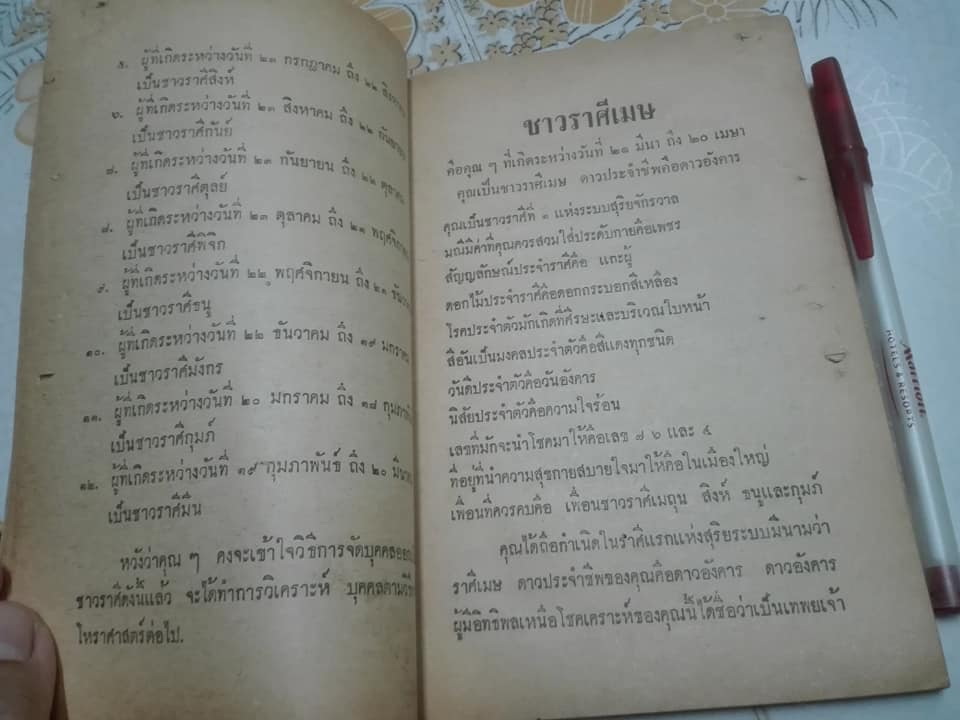 ๕. ผู้ที่เกิดระหว่างวันที่ ๒๓ กรกฎาคม ถึง ๒๒
เป็นชาวราศีสิงห์
๖. ผู้ที่เกิดระหว่างวันที่ ๒๓ สิงหาคม ถึง ๒๒ กันยายน
เป็นชาวราศีกันย์
ผู้ที่เกิดระหว่างวันที่ ๒๓ กันยายน ถึง ๒๒ ตุลาคม
เป็นชาวราศีตุลย์
๘. ผู้ที่เกิดระหว่างวันที่ ๒๓ ตุลาคม ถึง ๒๑
เป็นชาวราศีพิจิก
๙. ผู้ที่เกิดระหว่างวันที่ ๒๒ พฤศจิกายน ถึง ๒๑
เป็นชาวราศีธนู
๑๐. ผู้ที่เกิดระหว่างวันที่ ๒๒ ธันวาคม ถึง ๑๙ มกราคม
เป็นชาวราศีมังกร
๑๑. ผู้ที่เกิดระหว่างวันที่ ๒๐ มกราคม ถึง ๑๘
เป็นชาวราศีกุมภ์
๑๒. ผู้ที่เกิดระหว่างวันที่ ๑๙ กุมภาพันธ์ ถึง ๒๐
เป็นชาวราศีมีน
หวังว่าคุณ ๆ คงจะเข้าใจวิธีการจัดบุคคล
ชาวราศีดังนี้แล้ว จะได้ทำการวิเคราะห์ บุคคลตาม
โหราศาสตร์ต่อไป.
ชาวราศีเมษ
คือคุณ ๆ ที่เกิดระหว่างวันที่ ๒๑ มีนา ถึง ๒๐ เมษา
คุณเป็นชาวราศีเมษ ดาวประจำชีพคือดาวอังคาร
คุณเป็นชาวราศีที่ ๑ แห่งระบบสุริยจักรวาล
มณีมีค่าที่คุณควรสวมใส่ประดับกายคือเพชร
สัญญลักษณ์ประจำราศีคือ แกะผู้
ดอกไม้ประจำราศีคือดอกกระบอกสีเหลือง
โรคประจำตัวมักเกิดที่ศีรษะและบริเวณใบหน้า
สีอันเป็นมงคลประจำตัวคือสีแดงทุกชนิด
วันดีประจำตัวคือวันอังคาร
นิสัยประจำตัวคือความใจร้อน
เลขที่มักจะนำโชคมาให้คือเลข ๗ ๖ และ ๕
ที่อยู่ที่นำความสุขกายสบายใจมาให้คือในเมืองใหญ่
เพื่อนที่ควรคบคือ เพื่อนชาวราศีเมถุน สิงห์ ธนูและกุมภ์
คุณได้ถือกำเนิดในราศีแรกแห่งสุริยระบบมีนามว่า
ราศีเมษ ดาวประจำชีพของคุณคือดาวอังคาร ดาวอังคาร
ผู้มีอิทธิพลเหนือโชคเคราะห์ของคุณนี้ได้ชื่อว่าเป็นเทพยเจ้า
Marriott
HOTELS & RESORTS